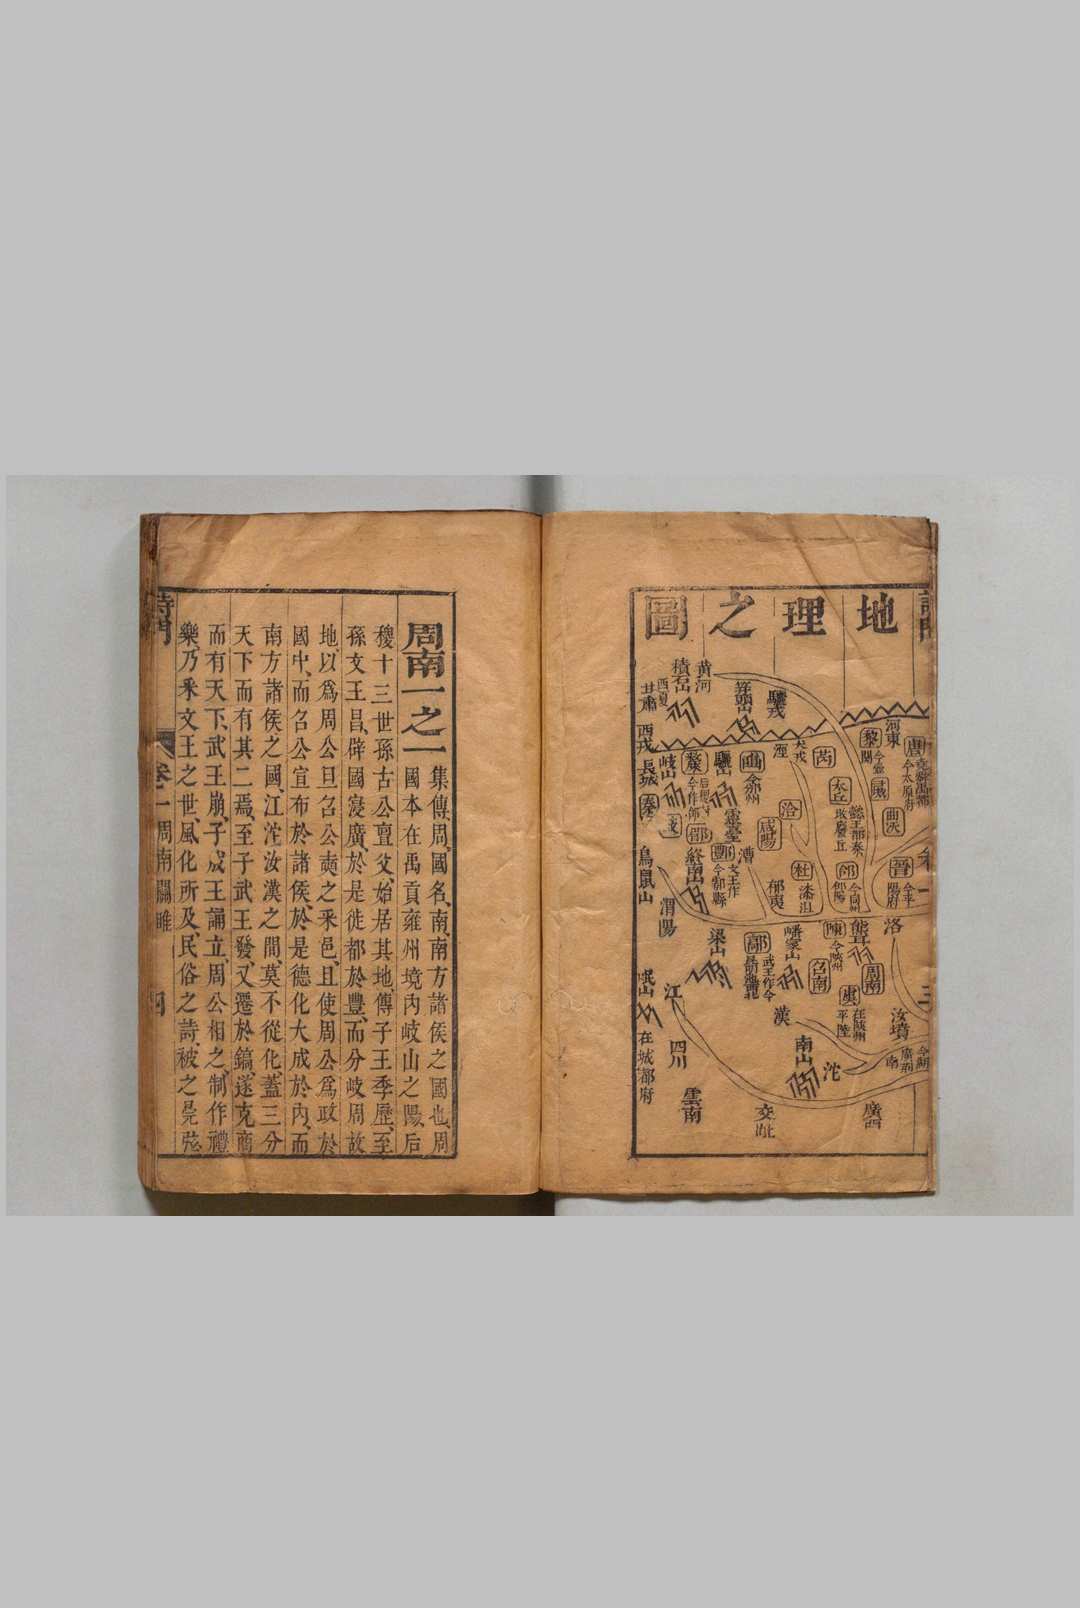 地理之圖
黃河
積石山
西夏
甘肅
西戎
長城
驪戎
河東
黎
唐
今太原府
芮
犬戎
涇
豳
今邠州
驪山
岐山
靈臺
咸陽
洽
曲沃
晉
杜
漆沮
郇
郁夷
漕
豐
文王作
今鄠縣
終南山
鳥鼠山
渭陽
梁山
鄗
嶓冢山
陳
召南
周南
洛
虞
在陝州
平陸
汝墳
漢
南山
沱
江
岷山
在城都府
四川
雲南
交趾
廣西
卷一
三
周南一之一
集傳、周、國名、南、南方諸侯之國也、周
國本在禹貢雍州境內岐山之陽、后
稷十三世孫古公亶父、始居其地、傳子王季歷、至
孫文王昌、辟國寖廣、於是徙都於豐、而分岐周故
地、以爲周公旦召公奭之采邑、且使周公爲政於
國中、而召公宣布於諸侯、於是德化大成於內、而
南方諸侯之國、江沱汝漢之間、莫不從化、蓋三分
天下而有其二焉、至子武王發、又遷於鎬、遂克商
而有天下、武王崩、子成王誦立、周公相之、制作禮
樂、乃采文王之世、風化所及、民俗之詩、被之筦弦
卷一 周南關雎 四